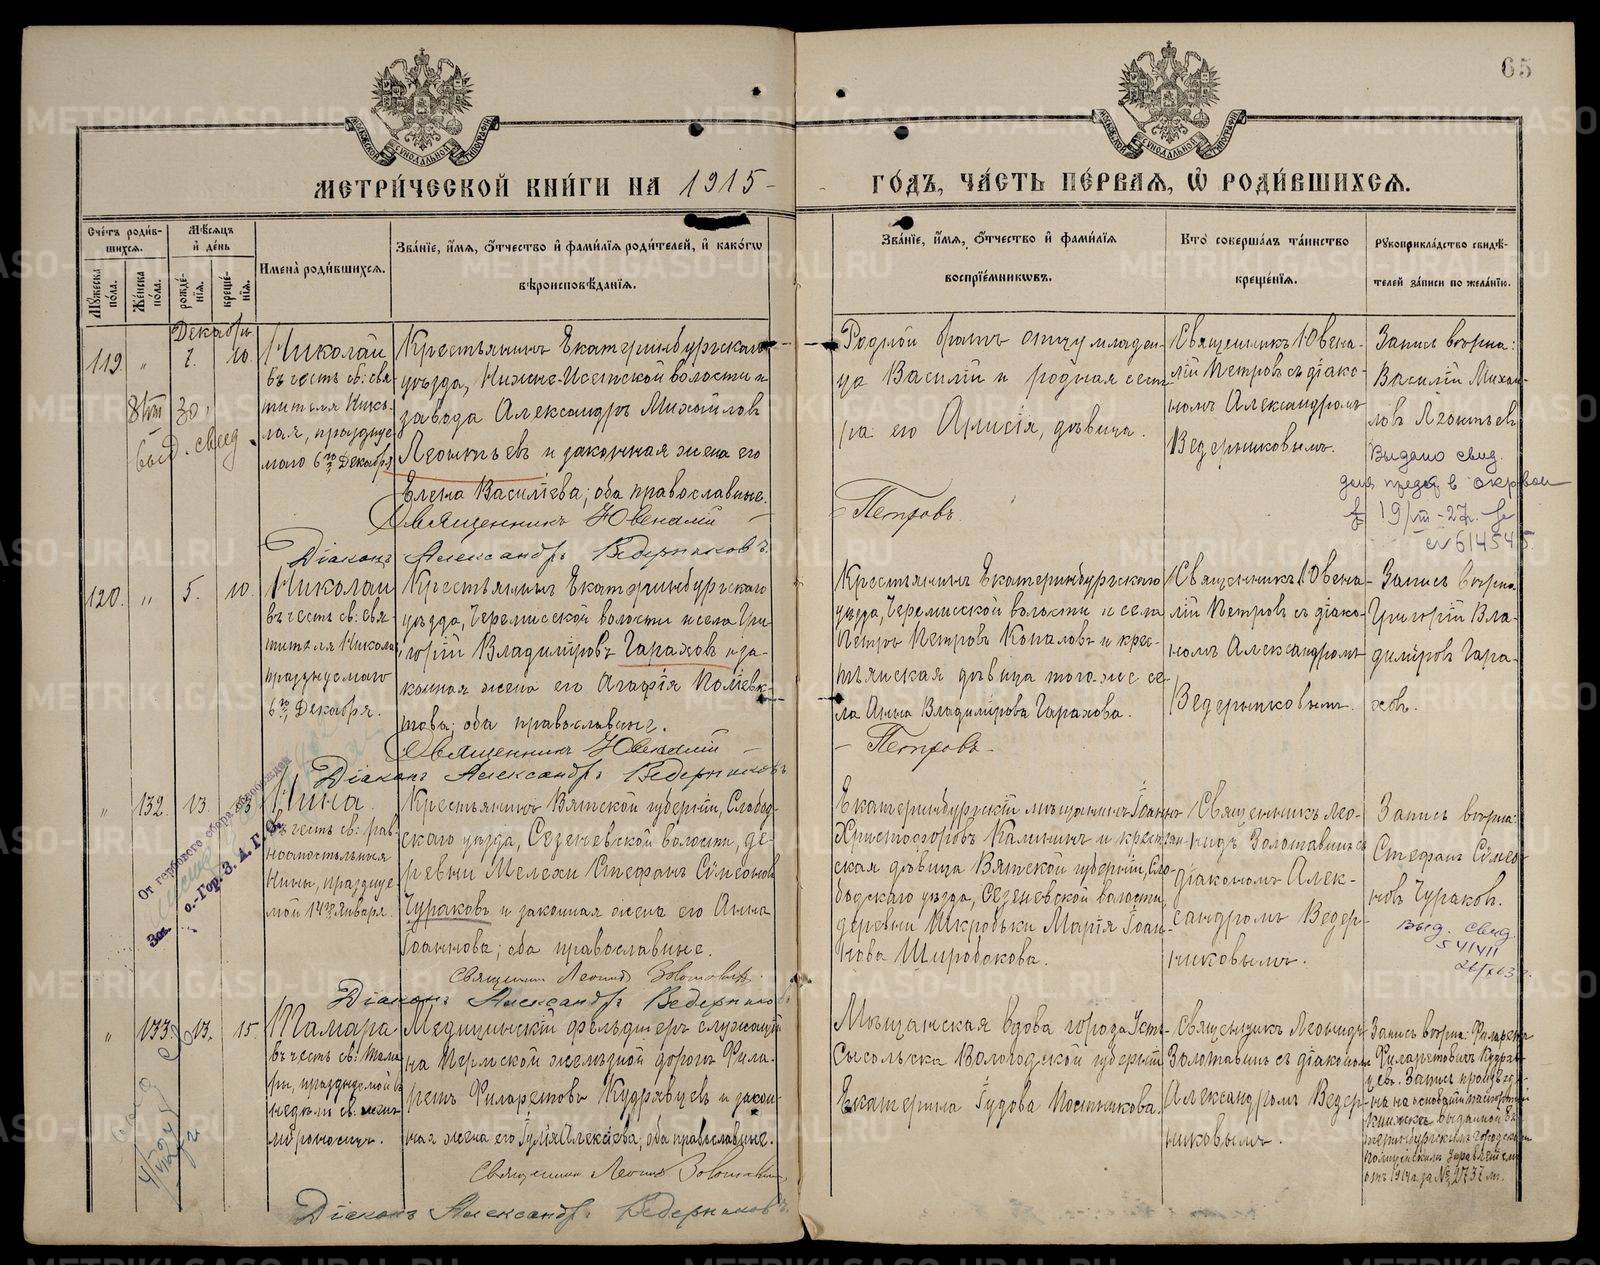 65
МОСКОВСКОЙ СѴНОДАЛЬНОЙ ТИПОГРАФІИ
МОСКОВСКОЙ СѴНОДАЛЬНОЙ ТИПОГРАФІИ
МЕТРИ́ЧЕСКОЙ КНИ́ГИ НА 1915
ГО́ДЪ, ЧА́СТЬ ПЕ́РВАЯ, Ѡ҆ РОДИ́ВШИХСЯ.
Счетъ родившихся.
Мѣсяцъ и день
Мужеска пола.
Женска пола.
рожденія.
крещенія.
Имена родившихся.
Званіе, имя, отчество и фамилія родителей, и какогѡ вѣроисповѣданія.
Званіе, имя, отчество и фамилія воспріемникѡвъ.
Кто совершалъ таинство крещенія.
Рукоприкладство свидѣтелей записи по желанію.
Декабрь
119.
"
7.
10.
Николай
въ честь св: свя-
тителя Нико-
лая, празднуе-
маго 6го Декабря
Крестьянинъ Екатеринбургскаго
уѣзда, Нижне-Исетской волости и
завода Александръ Михайловъ
Леонтьевъ и законная жена его
Елена Васильева; оба православные.
Священникъ Ювеналій
Діаконъ Александръ Ведерниковъ.
Родной братъ отцу младен-
ца Василій и родная сест-
ра его Анисія, дѣвица.
Петровъ.
Священникъ Ювена-
лій Петровъ съ діако-
номъ Александромъ
Ведерниковымъ.
Запись вѣрна:
Василій Михаи-
ловъ Леонтьев
Выдано свид.
для предст в окрвои
19/VIII-27г. за
№ 614545.
30.
выд. свид.
120.
"
5.
10.
Николай
въ честь св: свя-
тителя Никола
празднуемаго
6го Декабря.
Крестьянинъ Екатеринбургскаго
уѣзда, Черемисской волости и села Гри-
горій Владиміровъ Гараховъ и за-
конная жена его Агафія
оба православные.
Священникъ Ювеналій
Діаконъ Александръ Ведерниковъ
Крестьянинъ Екатеринбургскаго
уѣзда, Черемисской волости и села
Петръ Петровъ Копаловъ и крес-
тьянская дѣвица того-же се-
ла Анна Владимірова Гарахова.
Петровъ
Священникъ Ювена-
лій Петровъ съ діако-
номъ Александромъ
Ведерниковымъ.
Запись вѣрна
Григорій Вла-
диміровъ Гара-
ховъ.
"
132.
13.
Нина.
въ честь св: рав-
ноапостольныя
Нины, празднуе-
мой 14го Января.
От гербового сбора освобожден
о.-Гор. З. А. Г. С.
Зав.
Крестьянинъ Вятской губерніи, Слобод-
скаго уѣзда, Сезеневской волости, де-
ревни Мелехи Стефанъ Сѵмеоновъ
Чураковъ и законная жена его Анна
Іоаннова; оба православные.
Священникъ Леонидъ Золотавинъ
Діаконъ Александръ Ведерниковъ
Екатеринбургскій мѣщанинъ Іоаннъ
Христофоровъ Калининъ и крестьян-
ская дѣвица Вятской губерніи, Сло-
бодскаго уѣзда, Сезеневской волости,
деревни Мария Іоан-
нова Широбокова.
Священникъ Лео-
нидъ Золотавинъ съ
діакономъ Алек-
сандромъ Ведер-
никовымъ.
Запись вѣрна:
Стефанъ Сѵмео-
новъ Чураковъ.
выд. свид.
"
133.
13.
15.
Тамара
въ честь св: Тама-
ры, празднуемой въ
недѣлю св. женъ
мѵроносицъ.
Медицинскій фельдшеръ служащій
на Пермской желѣзной дорогѣ Фила-
ретъ Филаретовъ Кудрявцевъ и закон-
ная жена его Алексѣева; оба православные.
Священникъ Леонидъ Золотавинъ
Діаконъ Александръ Ведерниковъ.
Мѣщанская вдова города Усть-
Сысольска Вологодской губерніи
Екатерина Гудова Постникова.
Священникъ Леонидъ
Золотавинъ съ діакономъ
Александромъ Ведер-
никовымъ.
Запись вѣрна: Филаретъ
Филаретовичъ Кудряв-
цевъ. Запись произведе-
на на основаніи паспортной
книжки выданной Ека-
теринбургскимъ городскимъ
полицейскимъ управленіемъ
отъ 1914 г. за № 2737